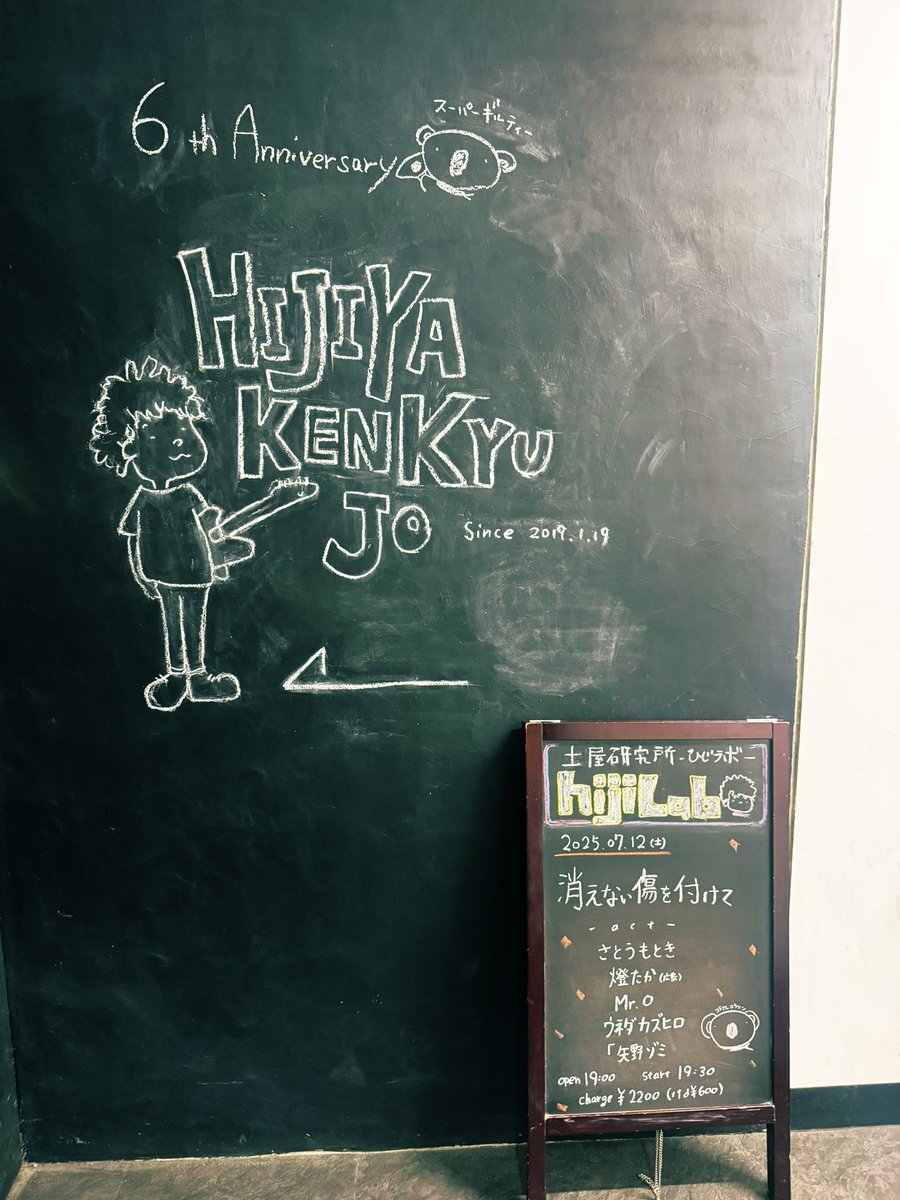 スーパーギルティー
6th Anniversary
HIJIYA
KENKYU
JO
Since 2019.1.19
土屋研究所-ひじラボ-
hijiLab
2025.07.12(土)
消えない傷を付けて
-act-
さとうもとき
燈たか
Mr.O
ウネダカズヒロ
「矢野ゾミ
open 19:00 start 19:30
charge ¥2200 (1d¥600)